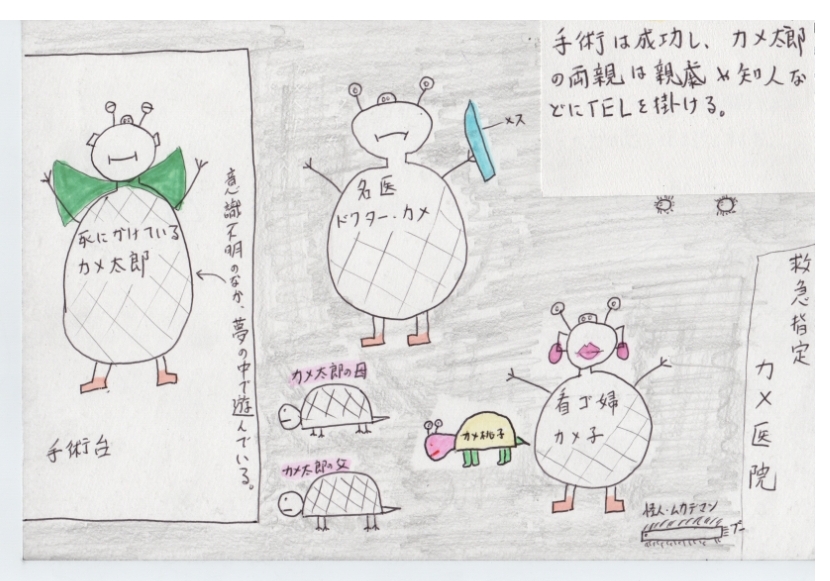 手術は成功し、カメ太郎
の両親は親戚や知人な
どにTELを掛ける。
メス
名医
ドクター・カメ
死にかけている
カメ太郎
意識不明のなか、夢の中で遊んでいる。
手術台
カメ太郎の母
カメ太郎の父
カメ桃子
看ゴ婦
カメ子
救急指定
カメ医院
怪人・ムカデマン
ブー